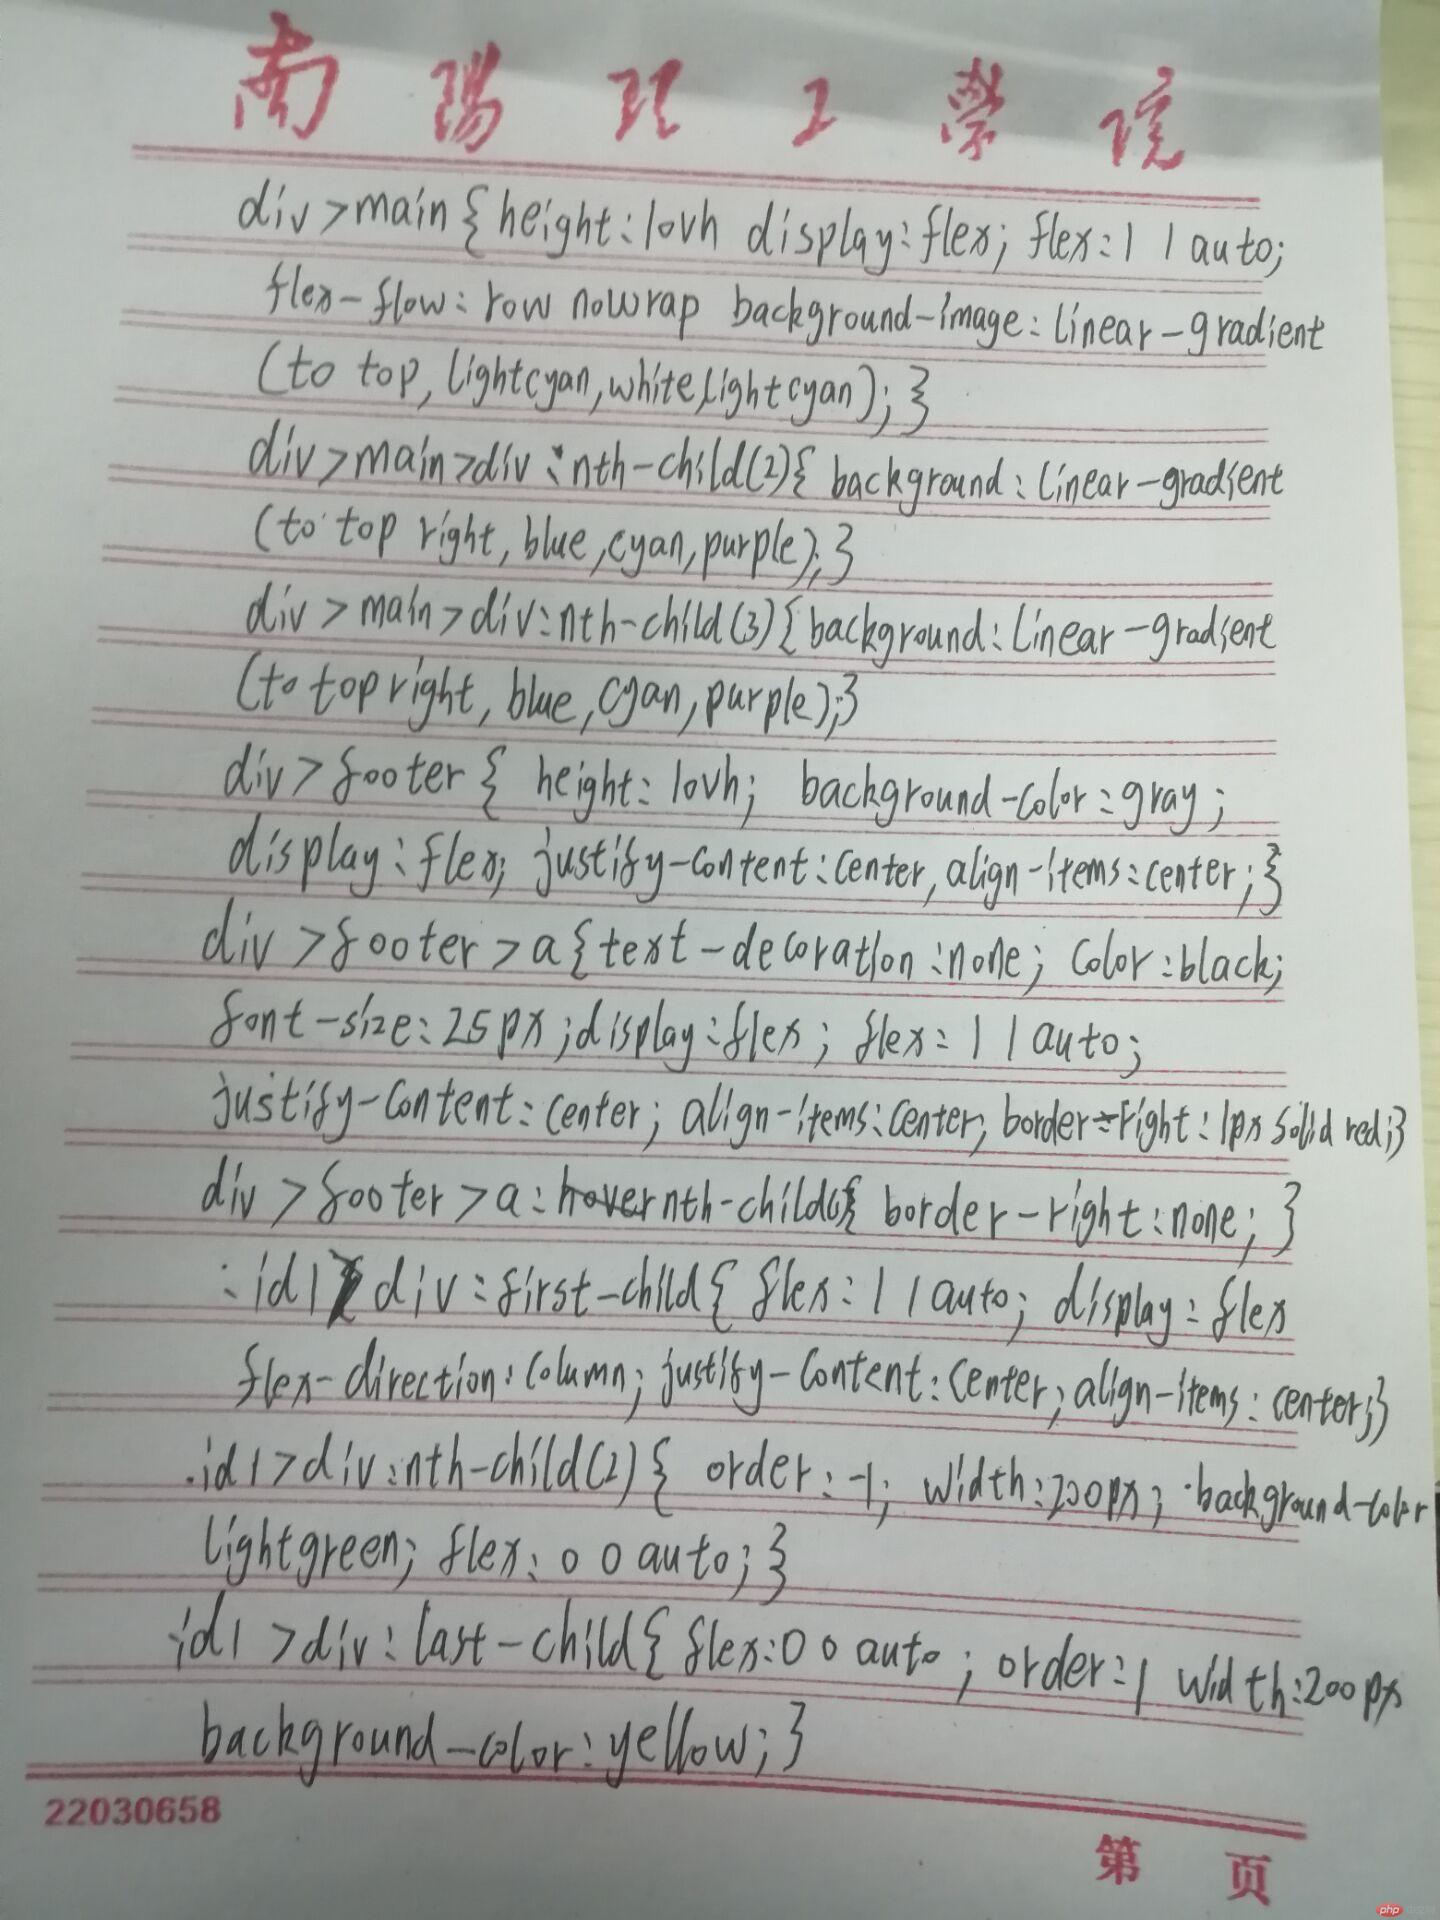 南陽理工學院
div>main{height:10vh display:flex; flex:1 1 auto;
flex-flow:row nowrap background-image:linear-gradient
(to top, lightcyan,white,lightcyan);}
div>main>div:nth-child(2){background:linear-gradient
(to top right, blue,cyan,purple);}
div>main>div:nth-child(3){background:linear-gradient
(to top right, blue,cyan,purple);}
div>footer{ height:10vh; background-color:gray;
display:flex; justify-content:center, align-items:center;}
div>footer>a{text-decoration:none; color:black;
font-size:25px;display:flex; flex:1 1 auto;
justify-content:center; align-items:center; border-right:1px solid red;}
div>footer>a:hover nth-child { border-right:none; }
.id1 div:first-child{ flex:1 1 auto; display:flex
flex-direction:column; justify-content:center; align-items:center;}
.id1>div:nth-child(2){ order:-1; width:200px; background-color
lightgreen; flex:0 0 auto;}
.id1>div:last-child{flex:0 0 auto; order:1 width:200px
background-color:yellow;}
22030658
第 页
php